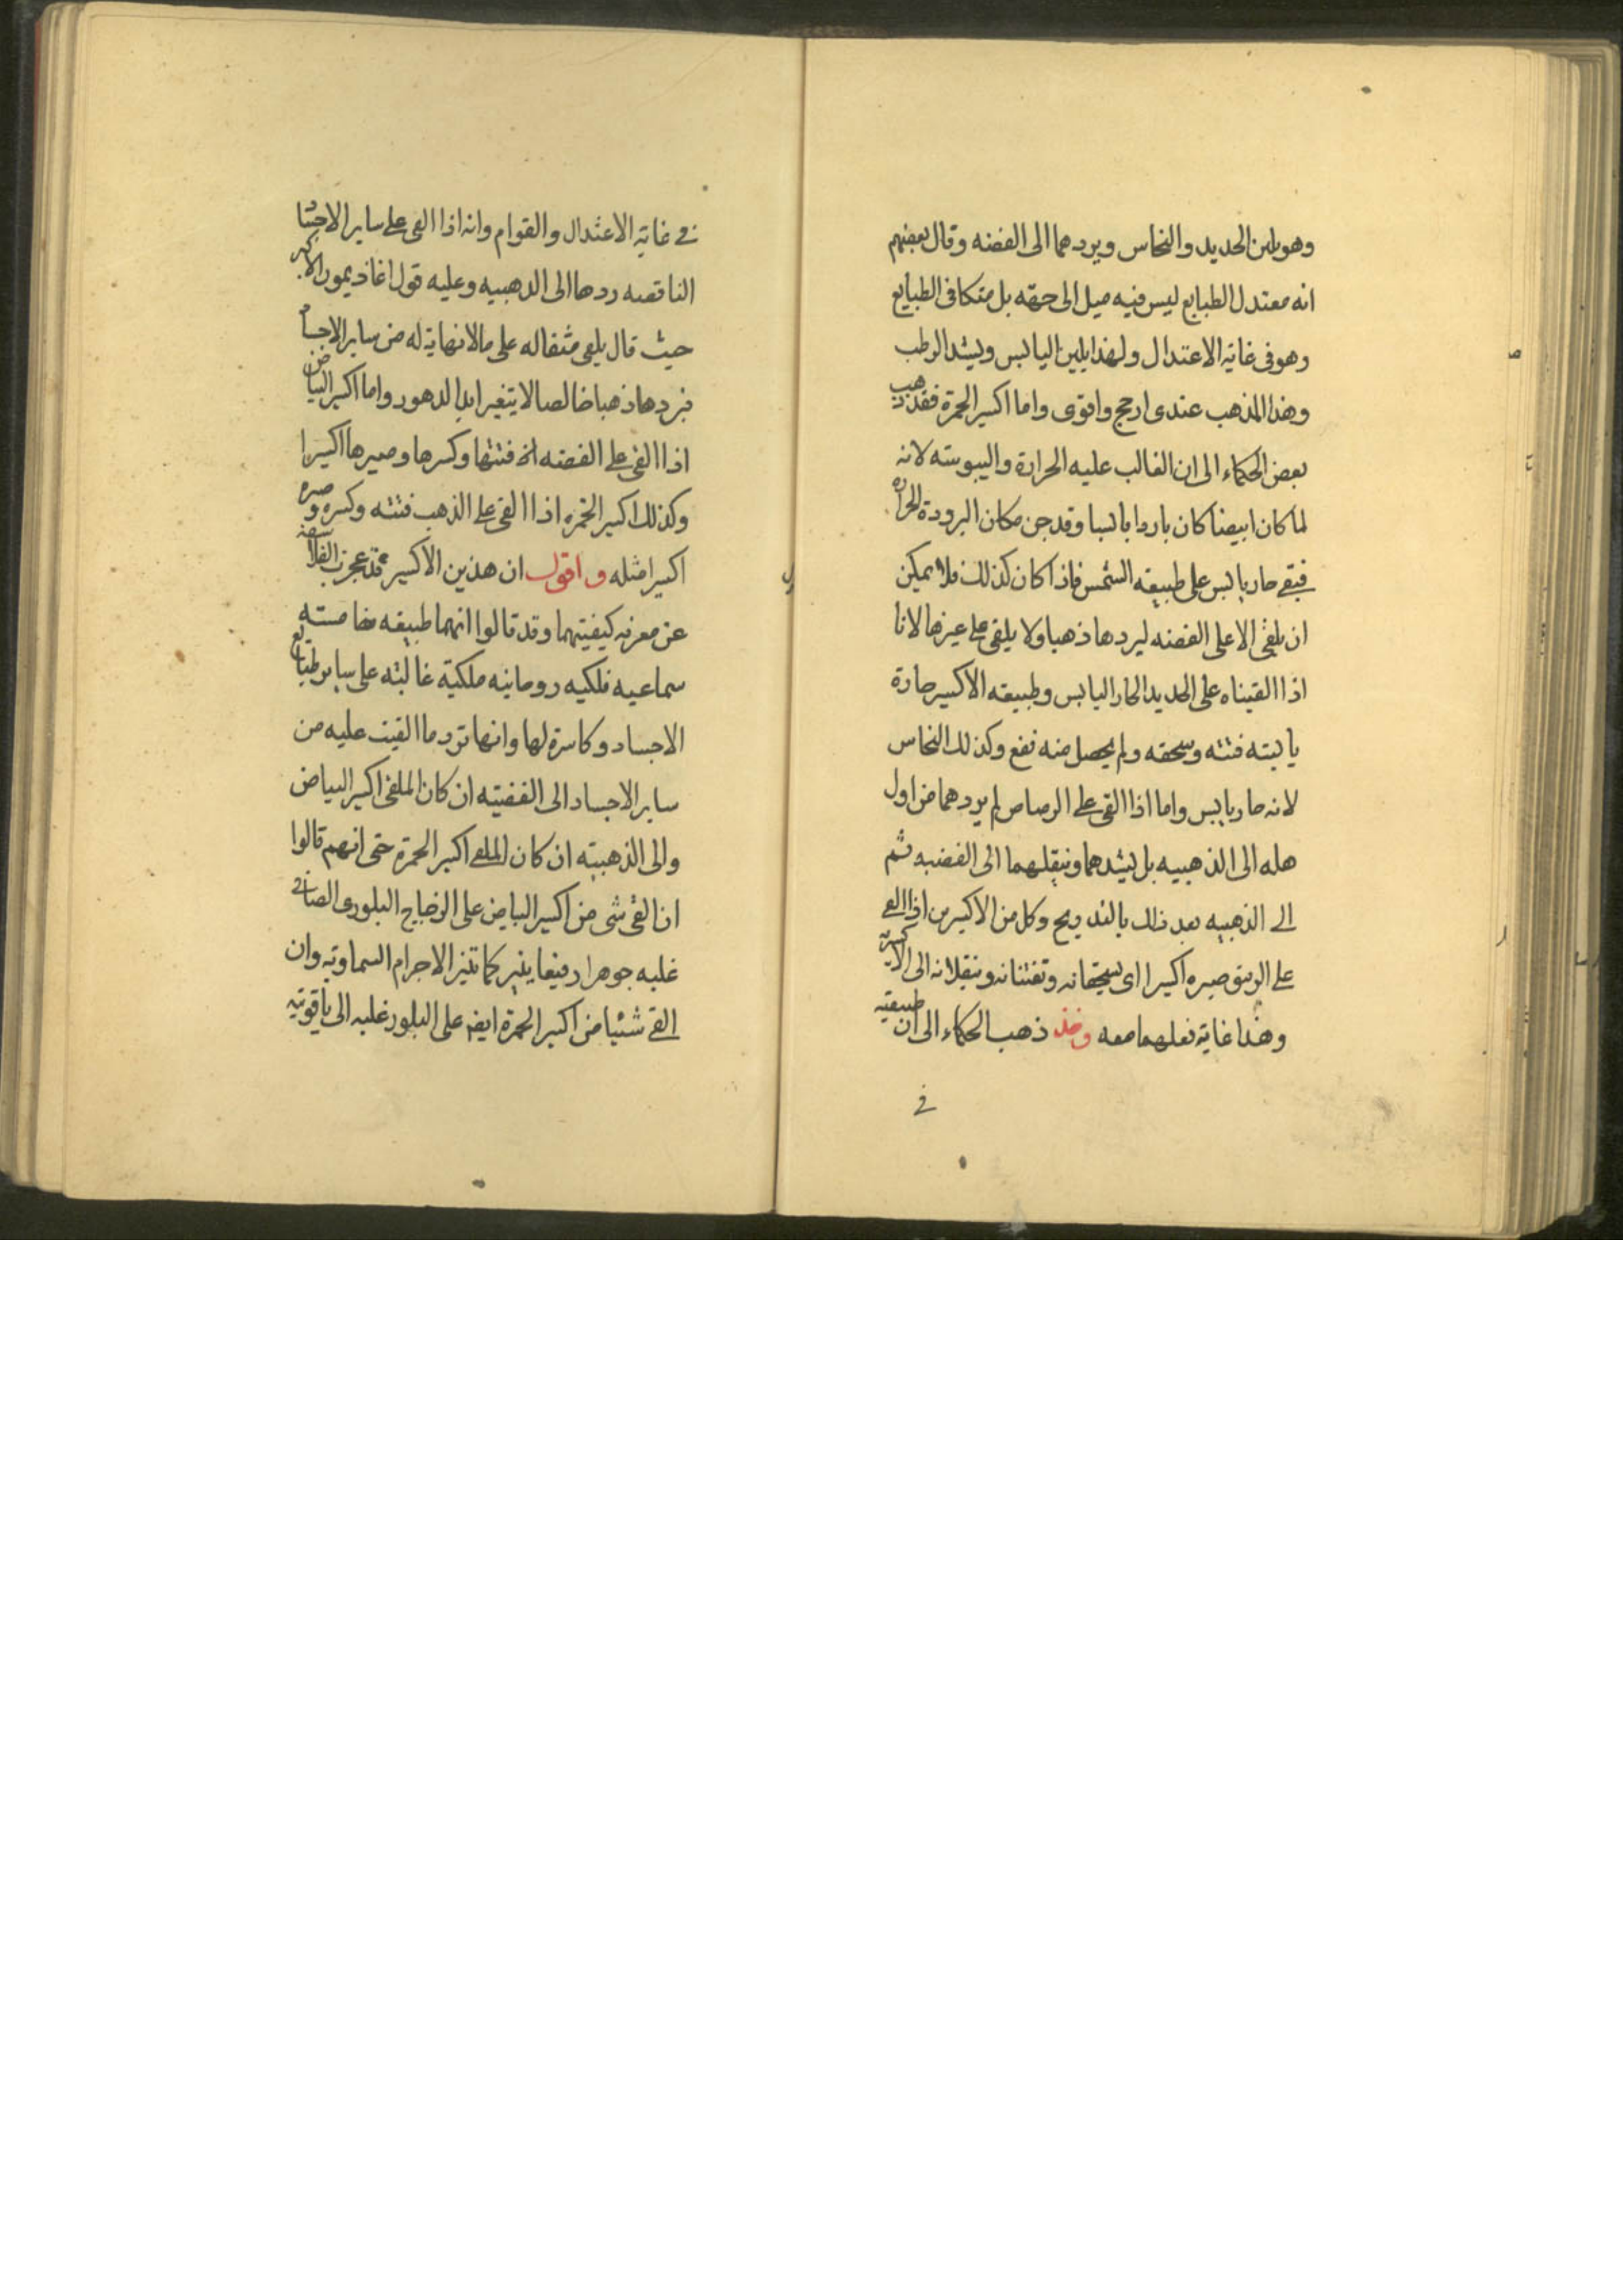 وهو يلين الحديد والنحاس ويردهما الى الفضه وقال بعضهم
انه معتدل الطبايع ليس فيه ميل الى جهه بل متكافى الطبايع
وهو فى غاية الاعتدال ولهذا يلين اليابس ويشد الرطب
وهذا المذهب عندى ارجح واقوى واما اكسير الحمرة فقد ذهب
بعض الحكماء الى ان الغالب عليه الحرارة واليبوسته لانه
لما كان ابيضا كان باردا يابسا وقد جن مكان البرودة الحراره
فبقى حار يابس على طبيعه الشمس فاذا كان كذلك فلا يمكن
ان يلقى الا على الفضه ليردها ذهبا ولا يلقى على غيرها لانا
اذا القيناه على الحديد الحار اليابس وطبيعه الاكسير حارة
يابسته فتته وسحقه ولم يحصل منه نفع وكذلك النحاس
لانه حار يابس واما اذا القى على الرصاص لم يردهما من اول
هله الى الذهبيه بل يشدهما وينقلهما الى الفضيه ثم
الى الذهبيه بعد ذلك بالتدريج وكل من الاكسيرين اذا القى
على الزيبق صيره اكسيرا اى يسحقانه ويفتنانه وينقلانه الى الاكسريه
وهذا غاية فعلهما معه وقد ذهب الحكماء الى ان طبيعيه
فى
فى غاية الاعتدال والقوام وانه اذا القى على ساير الاجساد
الناقصه ردها الى الدهبيه وعليه قول اغاذيمون الاكبر
حيث قال يلقى مثقاله على مالانهاية له من ساير الاجسام
فيردها ذهبا خالصا لا يتغير ابد الدهور واما اكسير البياض
اذا القى على الفضه فتتها وكسرها وصيرها اكسيرا
وكذلك اكسير الحمره اذا القى على الذهب فتته وكسره وصيره
اكسيرا مثله واقول ان هذين الاكسير قد عجزت الفلاسفه
عن معرفه كيفيتهما وقد قالوا انهما طبيعه خامسته
سماعيه فلكيه روحانيه ملكية غالبته على ساير طبايع
الاجساد وكاسرة لها وانها ترد ما القيت عليه من
ساير الاجساد الى الفضيته ان كان الملقى اكسير البياض
والى الذهبيته ان كان الملقى اكسير الحمرة حتى انهم قالوا
ان القى شى من اكسير البياض على الزجاج البلورى الصافى
غلبه جوهرا رفيعا ينير كما تنير الاجرام السماويه وان
القى شئيا من اكسير الحمرة ايضم على البلور غلبه الى ياقوتيه